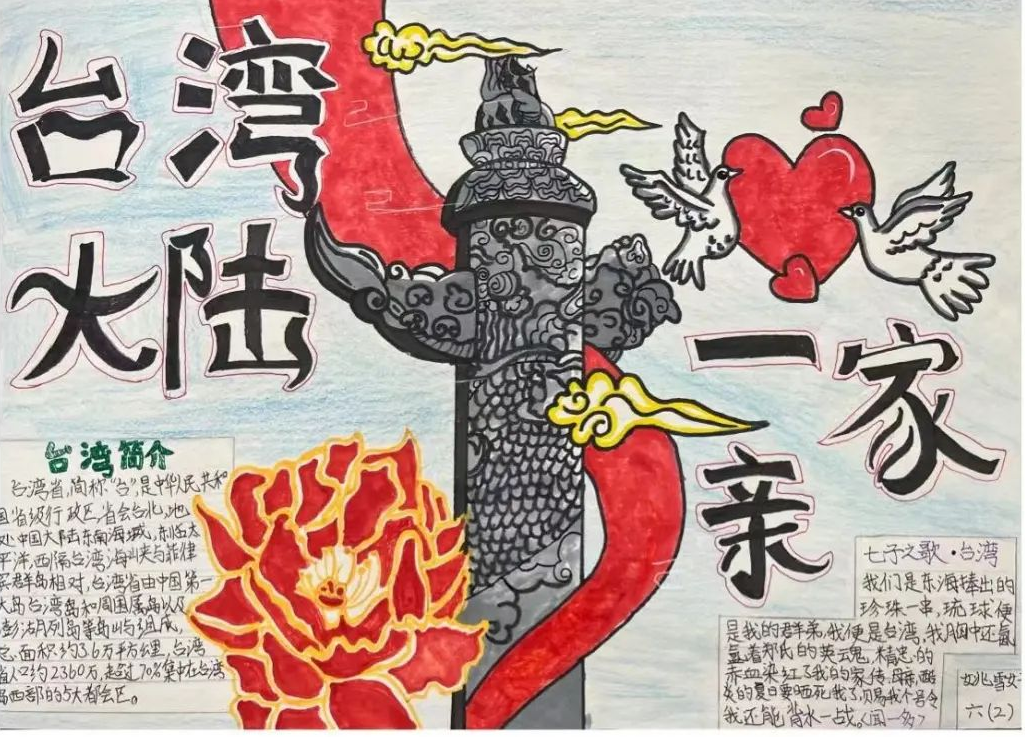 台湾
大陆
一家
亲
台湾简介
台湾省,简称“台”,是中华人民共和
国省级行政区,省会台北,地
处中国大陆东南海域,东临太
平洋,西隔台湾海峡与菲律
宾群岛相对,台湾省由中国第一
大岛台湾岛和周围属岛以及
澎湖列岛等岛屿组成,
总面积约3.6万平方公里,台湾
省人口约2360万,超过70%集中在台湾
岛西部的5大都会区。
七子之歌·台湾
我们是东海捧出的
珍珠一串,琉球便
是我的群弟,我便是台湾,我胸中还氤
氲着郑氏的英魂,精忠的
赤血染红了我的家传,母亲,酷
炎的夏日要晒死我了,赐我个号令
我还能背水一战。<闻一多>
姚雪
六(2)